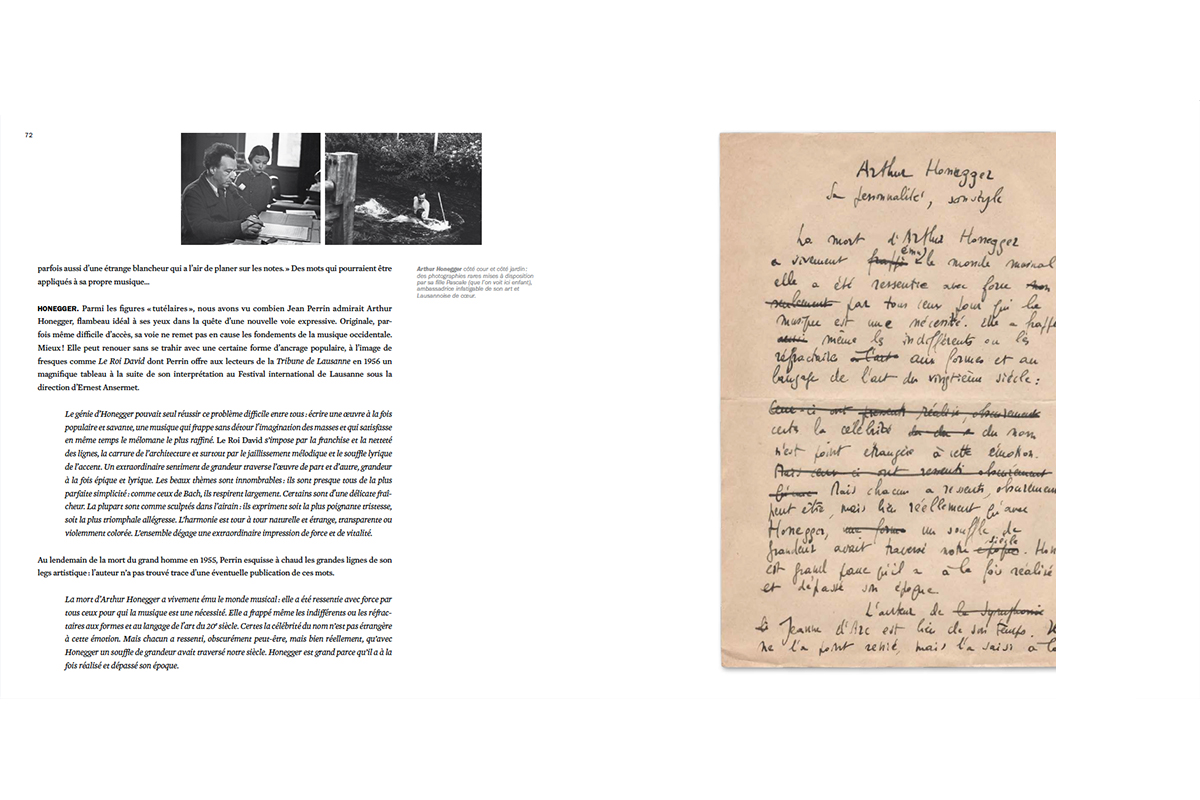 72
parfois aussi d'une étrange blancheur qui a l'air de planer sur les notes. » Des mots qui pourraient être
appliqués à sa propre musique...
Arthur Honegger côté cour et côté jardin :
des photographies rares mises à disposition
par sa fille Pascale (que l'on voit ici enfant),
ambassadrice infatigable de son art et
Lausannoise de cœur.
HONEGGER. Parmi les figures « tutélaires », nous avons vu combien Jean Perrin admirait Arthur
Honegger, flambeau idéal à ses yeux dans la quête d'une nouvelle voie expressive. Originale, par-
fois même difficile d'accès, sa voie ne remet pas en cause les fondements de la musique occidentale.
Mieux ! Elle peut renouer sans se trahir avec une certaine forme d'ancrage populaire, à l'image de
fresques comme Le Roi David dont Perrin offre aux lecteurs de la Tribune de Lausanne en 1956 un
magnifique tableau à la suite de son interprétation au Festival international de Lausanne sous la
direction d'Ernest Ansermet.
Le génie d'Honegger pouvait seul réussir ce problème difficile entre tous : écrire une œuvre à la fois
populaire et savante, une musique qui frappe sans détour l'imagination des masses et qui satisfasse
en même temps le mélomane le plus raffiné. Le Roi David s'impose par la franchise et la netteté
des lignes, la carrure de l'architecture et surtout par le jaillissement mélodique et le souffle lyrique
de l'accent. Un extraordinaire sentiment de grandeur traverse l'œuvre de part et d'autre, grandeur
à la fois épique et lyrique. Les beaux thèmes sont innombrables : ils sont presque tous de la plus
parfaite simplicité : comme ceux de Bach, ils respirent largement. Certains sont d'une délicate fraî-
cheur. La plupart sont comme sculptés dans l'airain : ils expriment soit la plus poignante tristesse,
soit la plus triomphale allégresse. L'harmonie est tour à tour naturelle et étrange, transparente ou
violemment colorée. L'ensemble dégage une extraordinaire impression de force et de vitalité.
Au lendemain de la mort du grand homme en 1955, Perrin esquisse à chaud les grandes lignes de son
legs artistique : l'auteur n'a pas trouvé trace d'une éventuelle publication de ces mots.
La mort d'Arthur Honegger a vivement ému le monde musical : elle a été ressentie avec force par
tous ceux pour qui la musique est une nécessité. Elle a frappé même les indifférents ou les réfrac-
taires aux formes et au langage de l'art du 20e siècle. Certes la célébrité du nom n'est pas étrangère
à cette émotion. Mais chacun a ressenti, obscurément peut-être, mais bien réellement, qu'avec
Honegger un souffle de grandeur avait traversé notre siècle. Honegger est grand parce qu'il a à la
fois réalisé et dépassé son époque.
Arthur Honegger
Sa personnalité, son style
La mort d'Arthur Honegger
a vivement frappé ému le monde musical
elle a été ressentie avec force non
seulement par tous ceux pour qui la
musique est une nécessité. Elle a frappé
aussi même les indifférents ou les
réfractaires à l'art aux formes et au
langage de l'art du vingtième siècle :
Ceux-ci ont réalisé, obscurément
certes la célébrité du nom
n'est point étrangère à cette émotion.
Mais ceux-ci ont ressenti obscurément
Mais chacun a ressenti, obscurément
peut être, mais bien réellement qu'avec
Honegger, un souffle de
grandeur avait traversé notre époque siècle. Hon
est grand parce qu'il a à la fois réalisé
et dépassé son époque
L'auteur de la symphonie
Jeanne d'Arc est bien de son temps.
ne l'a point renié, mais l'a saisi à